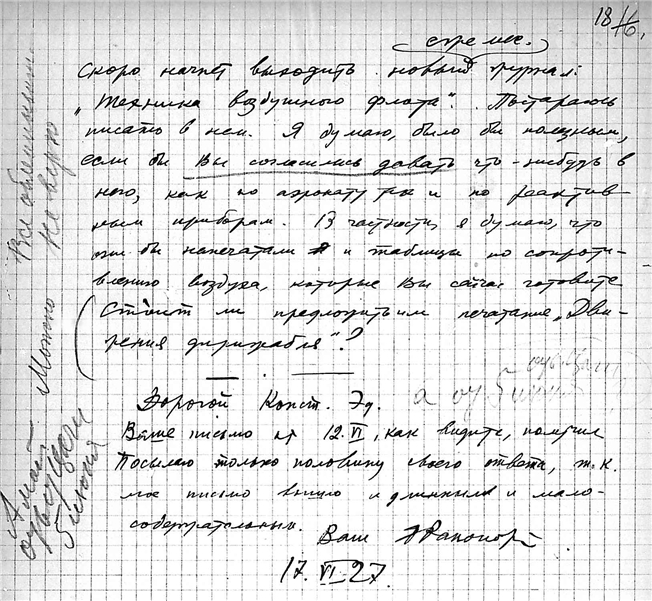 18 /16.
еже мес.
Скоро начнет выходить новый журнал:
„Техника воздушного флота“. Постараюсь
писать в нем. Я думаю, было бы полезным,
если бы Вы согласились давать что-нибудь в
него, как по аэронавт и по реактив-
ным приборам. В частности, я думаю, что
они бы напечатали и таблицы по сопроти-
влению воздуха, которые Вы сейчас готовите
Стоит ли предложить им печатание „Дви-
жения дирижабля“?
Дорогой Конст. Эд.
Ваше письмо от 12.VI, как видите, получил
Посылаю только половину своего ответа, т.к.
мое письмо вышло и длинным и мало-
содержательным.
Ваш Рапопорт
17.VI.27.
Все
не верно
Можно